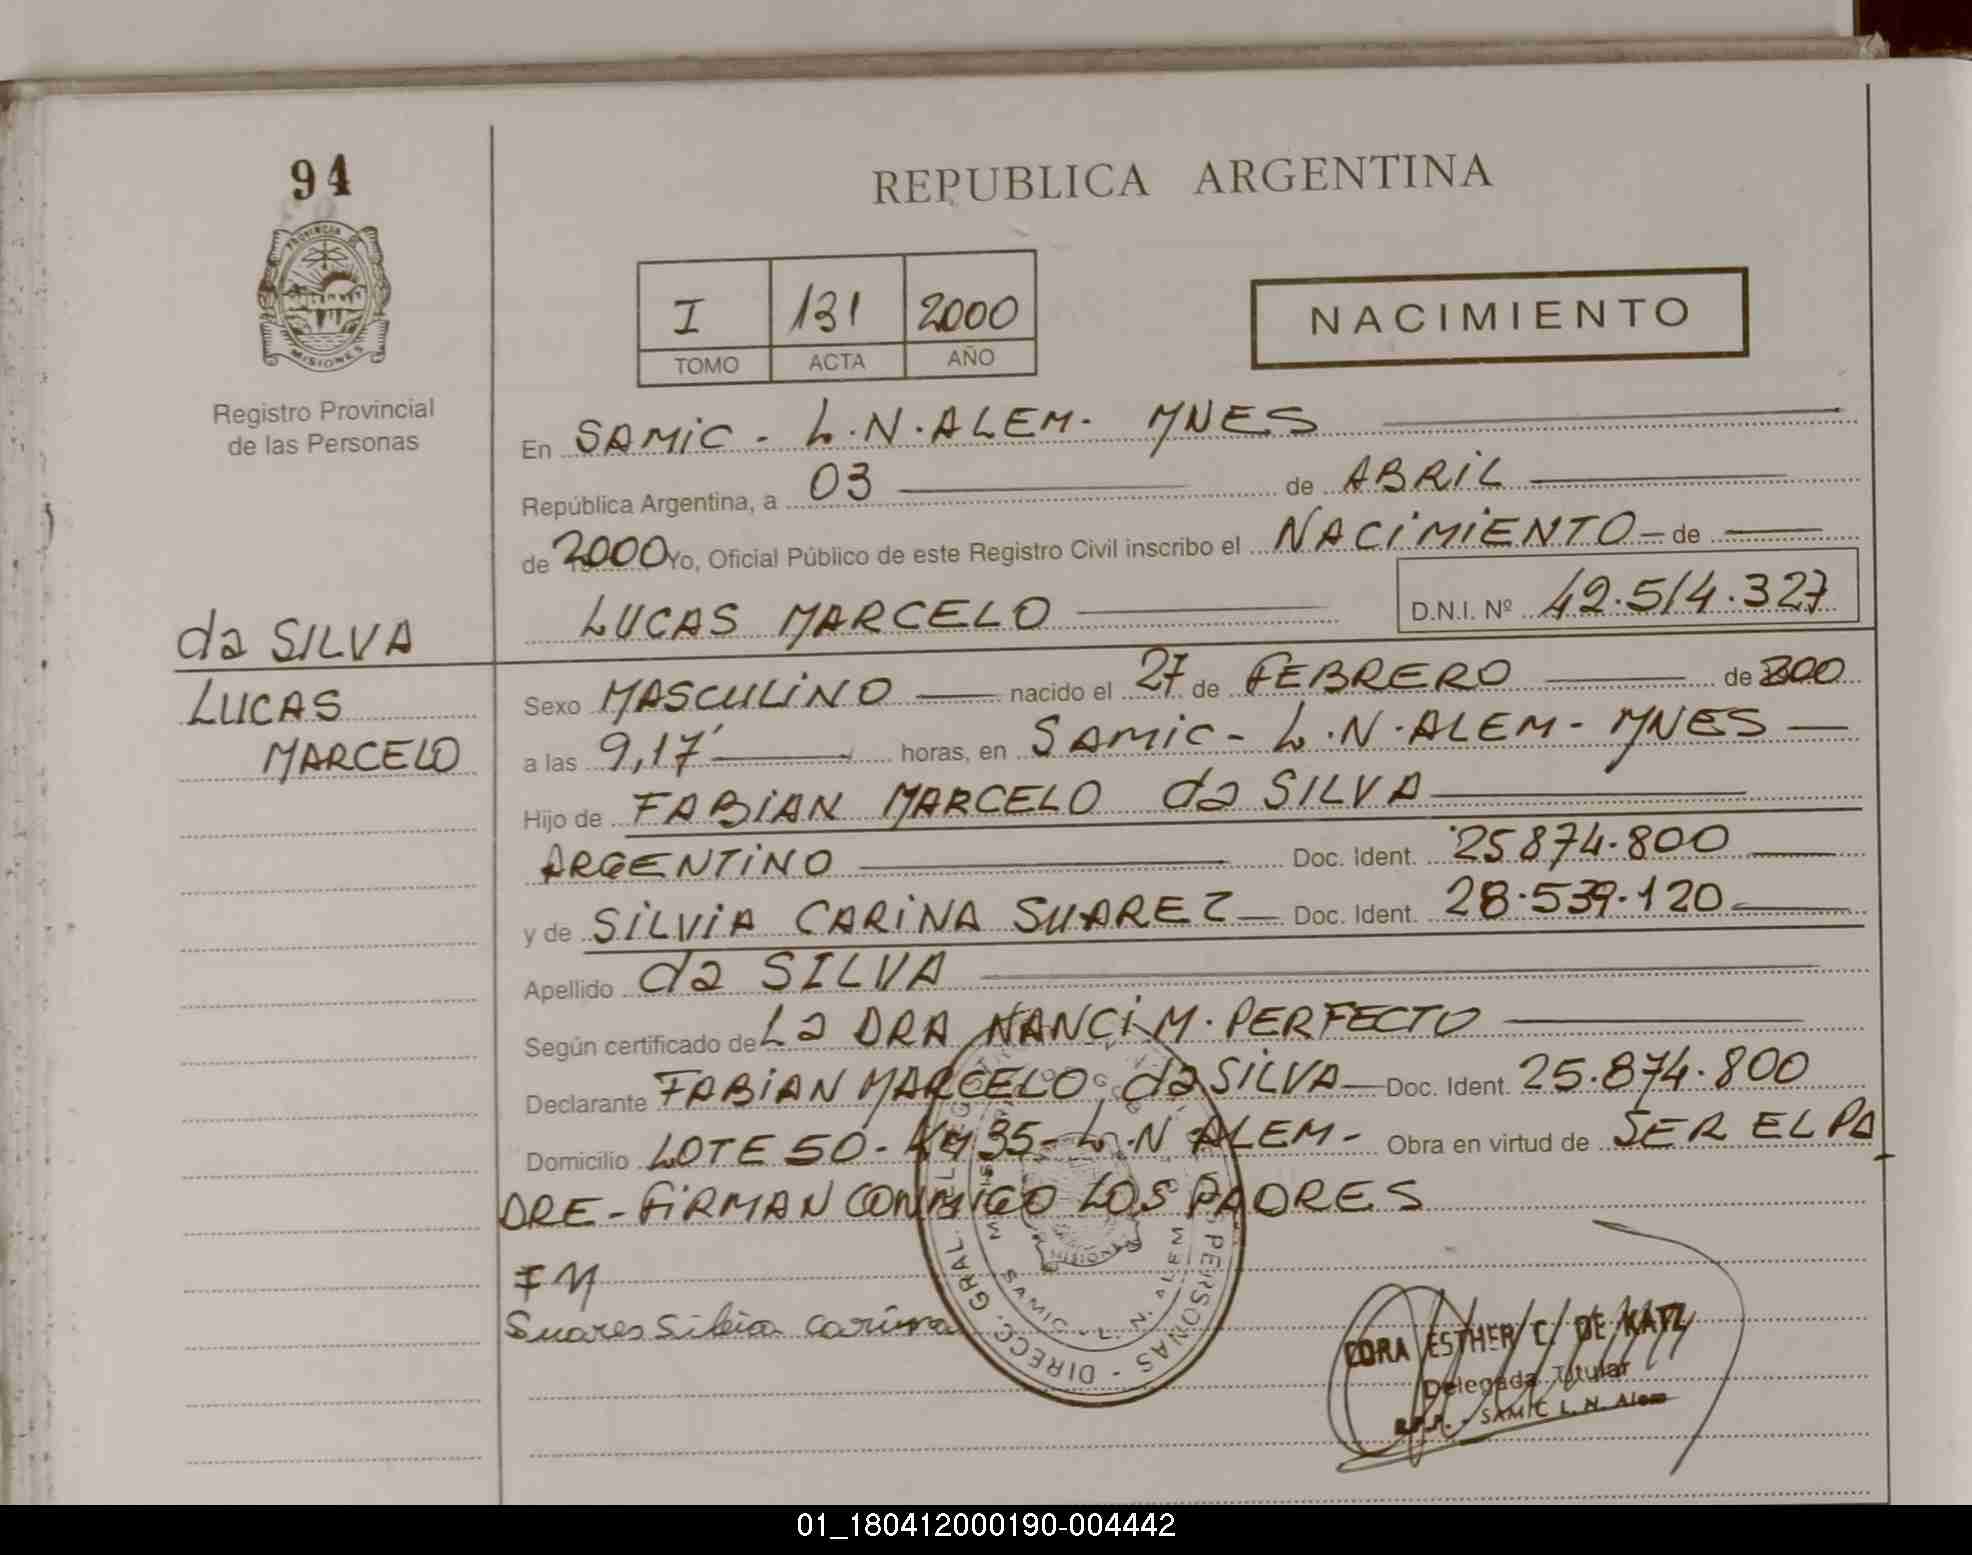 94
PROVINCIA DE
MISIONES
Registro Provincial
de las Personas
da SILVA
LUCAS
MARCELO
REPUBLICA ARGENTINA
I 131 2000
TOMO ACTA AÑO
NACIMIENTO
En SAMIC - L.N.ALEM- MNES
República Argentina, a 03 de ABRIL
de 2000 Yo, Oficial Público de este Registro Civil inscribo el NACIMIENTO - de
LUCAS MARCELO D.N.I. Nº 42.514.327
Sexo MASCULINO nacido el 27 de FEBRERO de
a las 9,17' horas, en SAMIC - L.N.ALEM - MNES
Hijo de FABIAN MARCELO da SILVA
ARGENTINO Doc. Ident. 25874.800
y de SILVIA CARINA SUAREZ Doc. Ident. 28.539.120
Apellido da SILVA
Según certificado de La DRA NANCI M. PERFECTO
Declarante FABIAN MARCELO da SILVA Doc. Ident. 25.874.800
Domicilio LOTE 50 - KM 35 - L.N ALEM - Obra en virtud de SER EL PA
DRE - FIRMAN CONMIGO LOS PADRES
Suares Silvia Carina
DIRECC. GRAL. PERSONAS
SAMIC - L. N. ALEM
MISIONES
CDRA ESTHER C. DE KATZ
Delegada Titular
R.P.P. - SAMIC L. N. Alem
01_180412000190-004442